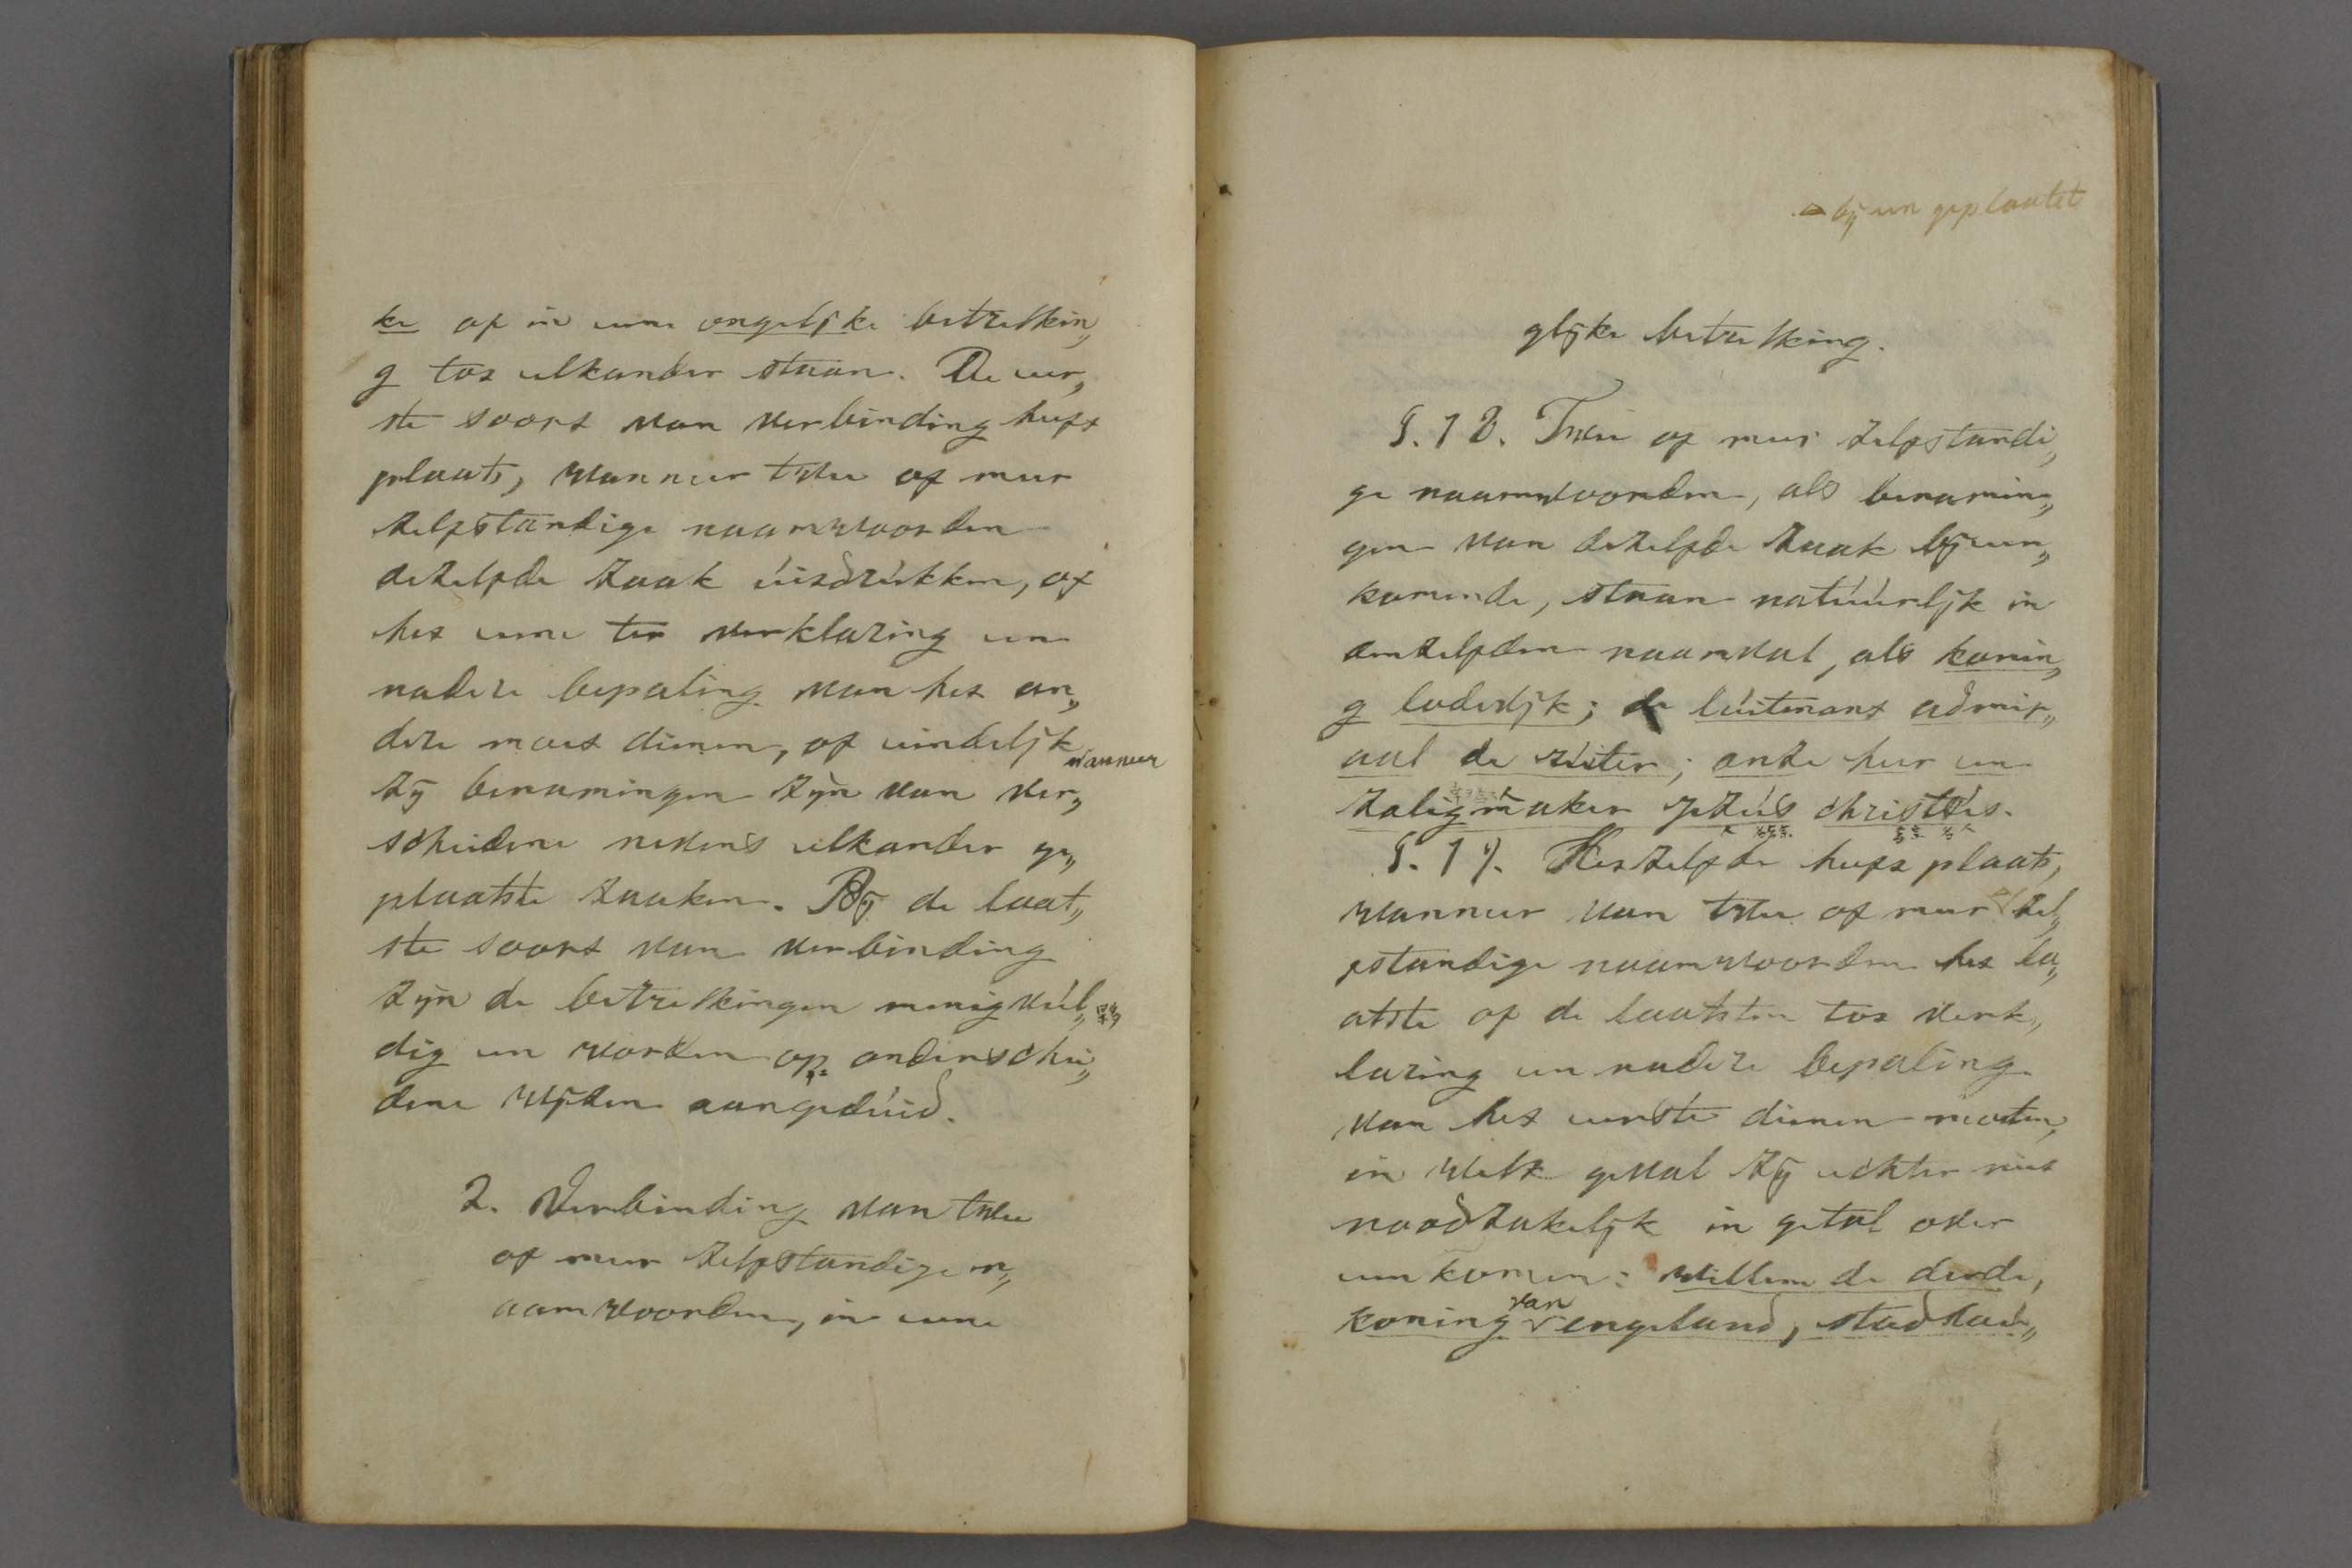 ke of in eene ongelijke betrekkin„
g tot elkander staan. De eer„
ste soort van verbinding heeft
plaats, wanneer twee of meer
zelfstandige naamwoorden
dezelfde zaak úitdrúkken, of
het eene ter verklaring en
nadere bepaling van het an„
dere moet dienen, of eindelijk
wanneer
zij benamingen zijn van ver„
scheidene nevens elkander ge„
plaatste zaaken. Bij de laat„
ste soort van verbinding
zijn de betrekkingen menigvúl„
dig en worden op onderschei„
dene wijzen aangedúid.
2. Verbinding van twee
of meer zelfstandige n„
aamwoorden, in eene
bij een geplaatst
glijke betrekking.
§. 18. Twee of meer zelfstandi„
ge naamwoorden, als benamin„
gen van dezelfde zaak bijeen„
komende, staan natúúrlijk in
denzelfden naamval, als konin„
g lodewijk; de lúitenant admir„
aal de rúiter; onze heer en
zaligmaker jezús christús.
§. 19. Hetzelfde heeft plaats,
wanneer van twee of meer zel„
fstandige naamwoorden het la„
atste of de laatsten tot verk„
laring en nadere bepaling
van het eerste dienen moeten,
in welk geval zij echter niet
noodzakelijk in getal over
een komen: willem de derde,
van
koning engeland, stadhoú„